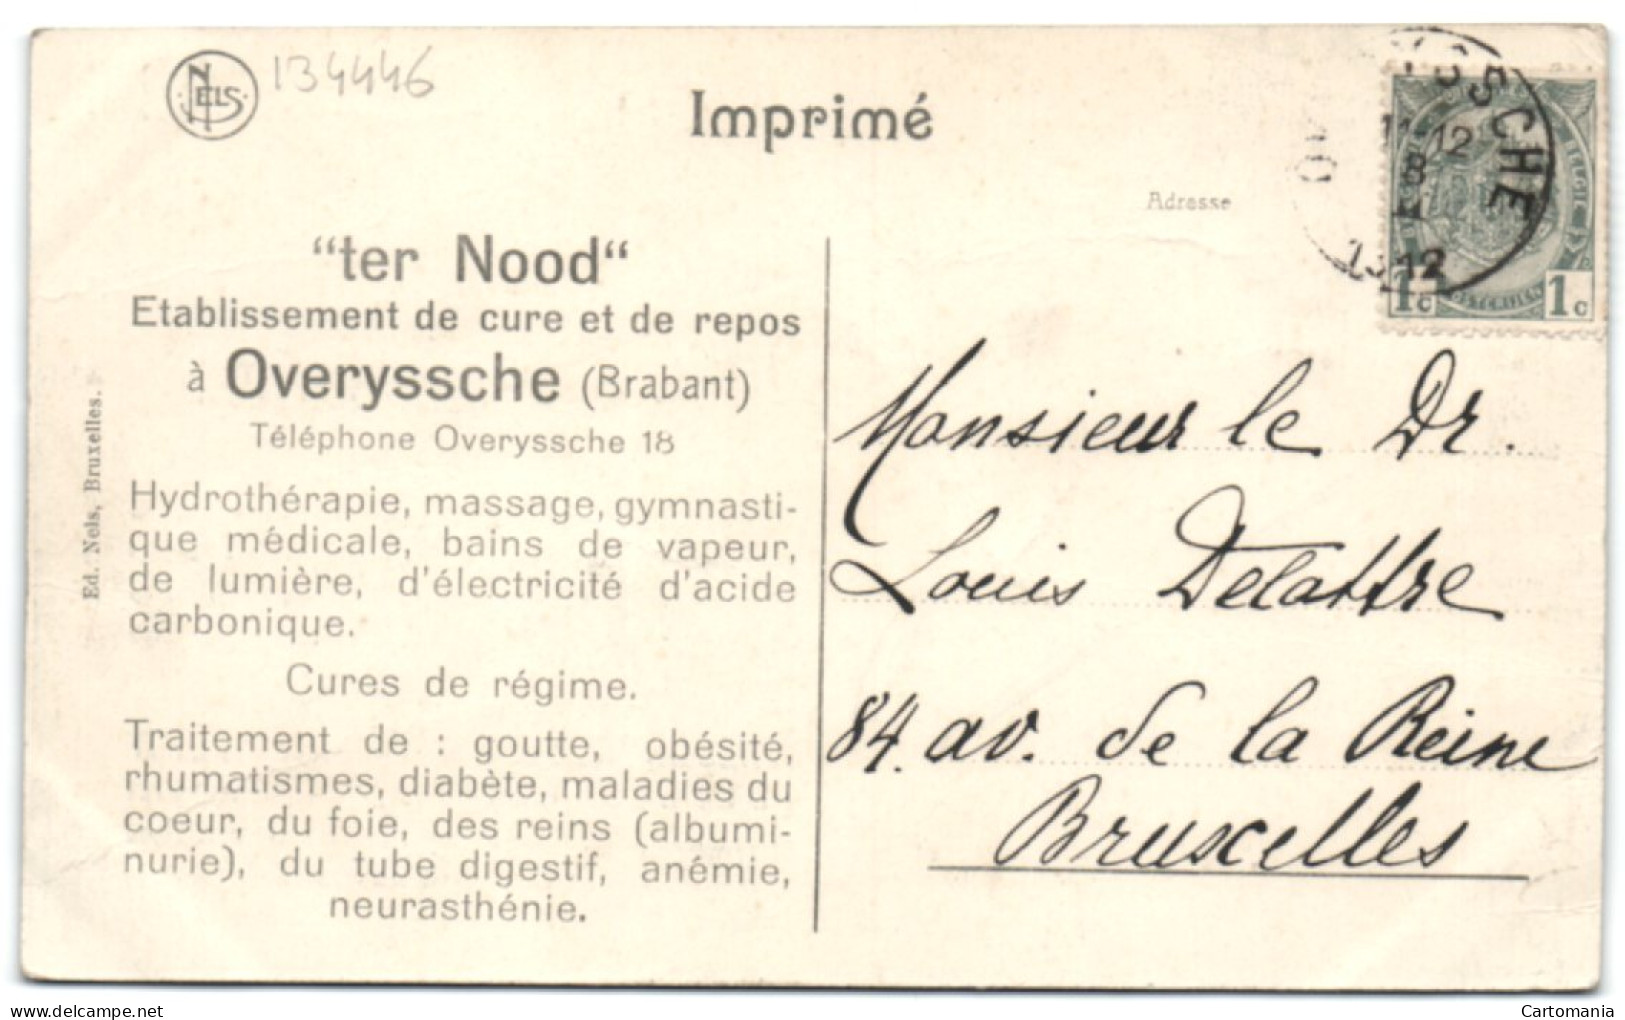 NELS
134446
Imprimé
Adresse
"ter Nood"
Etablissement de cure et de repos
à Overyssche (Brabant)
Téléphone Overyssche 18
Hydrothérapie, massage, gymnasti-
que médicale, bains de vapeur,
de lumière, d'électricité d'acide
carbonique.
Cures de régime.
Traitement de : goutte, obésité,
rhumatismes, diabète, maladies du
coeur, du foie, des reins (albumi-
nurie), du tube digestif, anémie,
neurasthénie.
Ed. Nels, Bruxelles.
11-12
8
12
1c
1c
Monsieur le Dr.
Louis Delattre
84. av. de la Reine
Bruxelles
Cartomania